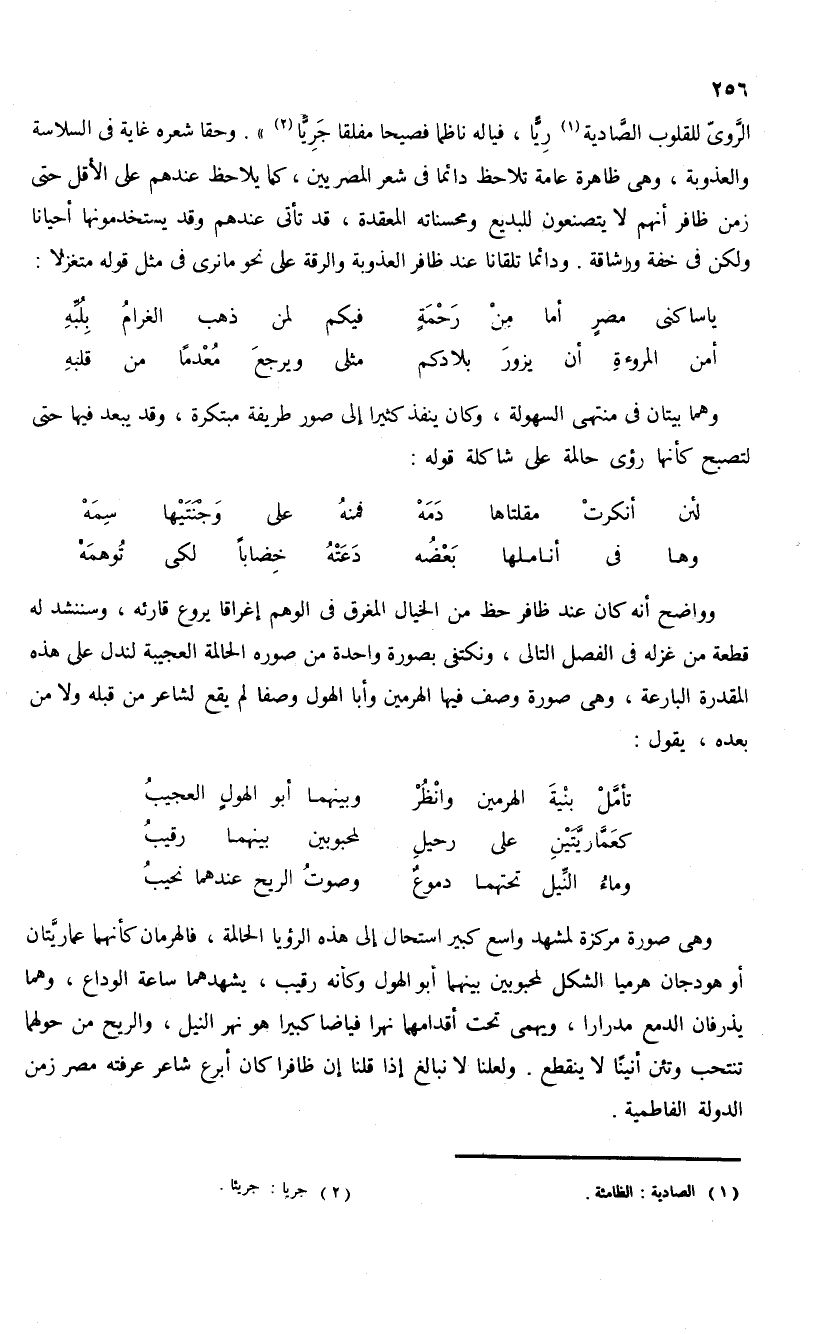 ٢٥٦
الرَّوىّ للقلوب الصَّادية(١) رِيًّا ، فياله ناظما فصيحا مفلقا جَرِيًّا(٢) » . وحقا شعره غاية فى السلاسة
والعذوبة ، وهى ظاهرة عامة تلاحظ دائما فى شعر المصريين ، كما يلاحظ عندهم على الأقل حتى
زمن ظافر أنهم لا يتصنعون للبديع ومحسناته المعقدة ، قد تأتى عندهم وقد يستخدمونها أحيانا
ولكن فى خفة ورشاقة . ودائما تلقانا عند ظافر العذوبة والرقة على نحو مانرى فى مثل قوله متغزلا :
ياساكنى مصرٍ أما مِنْ رَحْمَةٍ فيكم لمن ذهب الغرامُ بِلُبِّهِ
أمن المروءةِ أن يزورَ بلادكم مثلى ويرجعَ مُعْدمًا من قلبهِ
وهما بيتان فى منتهى السهولة ، وكان ينفذ كثيرا إلى صور طريفة مبتكرة ، وقد يبعد فيها حتى
لتصبح كأنها رؤى حالمة على شاكلة قوله :
لئن أنكرتْ مقلتاها دَمَهْ فمنهُ على وَجْنَتَيْها سِمَهْ
وها فى أناملها بَعْضُه دَعَتْهُ خِضاباً لكى تُوهمَهْ
وواضح أنه كان عند ظافر حظ من الخيال المغرق فى الوهم إغراقا يروع قارئه ، وسننشد له
قطعة من غزله فى الفصل التالى ، ونكتفى بصورة واحدة من صوره الحالمة العجيبة لندل على هذه
المقدرة البارعة ، وهى صورة وصف فيها الهرمين وأبا الهول وصفا لم يقع لشاعر من قبله ولا من
بعده ، يقول :
تأمَّلْ بنْيةَ الهرمين وانْظُرْ وبينهما أبو الهولِ العجيبُ
كعَمَّاريَّتَيْنِ على رحيلِ لمحبوبين بينهما رقيبُ
وماءُ النِّيل تحتهما دموعٌ وصوتُ الريح عندهما نحيبُ
وهى صورة مركزة لمشهد واسع كبير استحال إلى هذه الرؤيا الحالمة ، فالهرمان كأنهما عماريَّتان
أو هودجان هرميا الشكل لمحبوبين بينهما أبو الهول وكأنه رقيب ، يشهدهما ساعة الوداع ، وهما
يذرفان الدمع مدرارا ، ويهمى تحت أقدامهما نهرا فياضا كبيرا هو نهر النيل ، والريح من حولهما
تنتحب وتئن أنينًا لا ينقطع . ولعلنا لا نبالغ إذا قلنا إن ظافرا كان أبرع شاعر عرفته مصر زمن
الدولة الفاطمية .
(١) الصادية : الظامئة . (٢) جريا : جريئا .